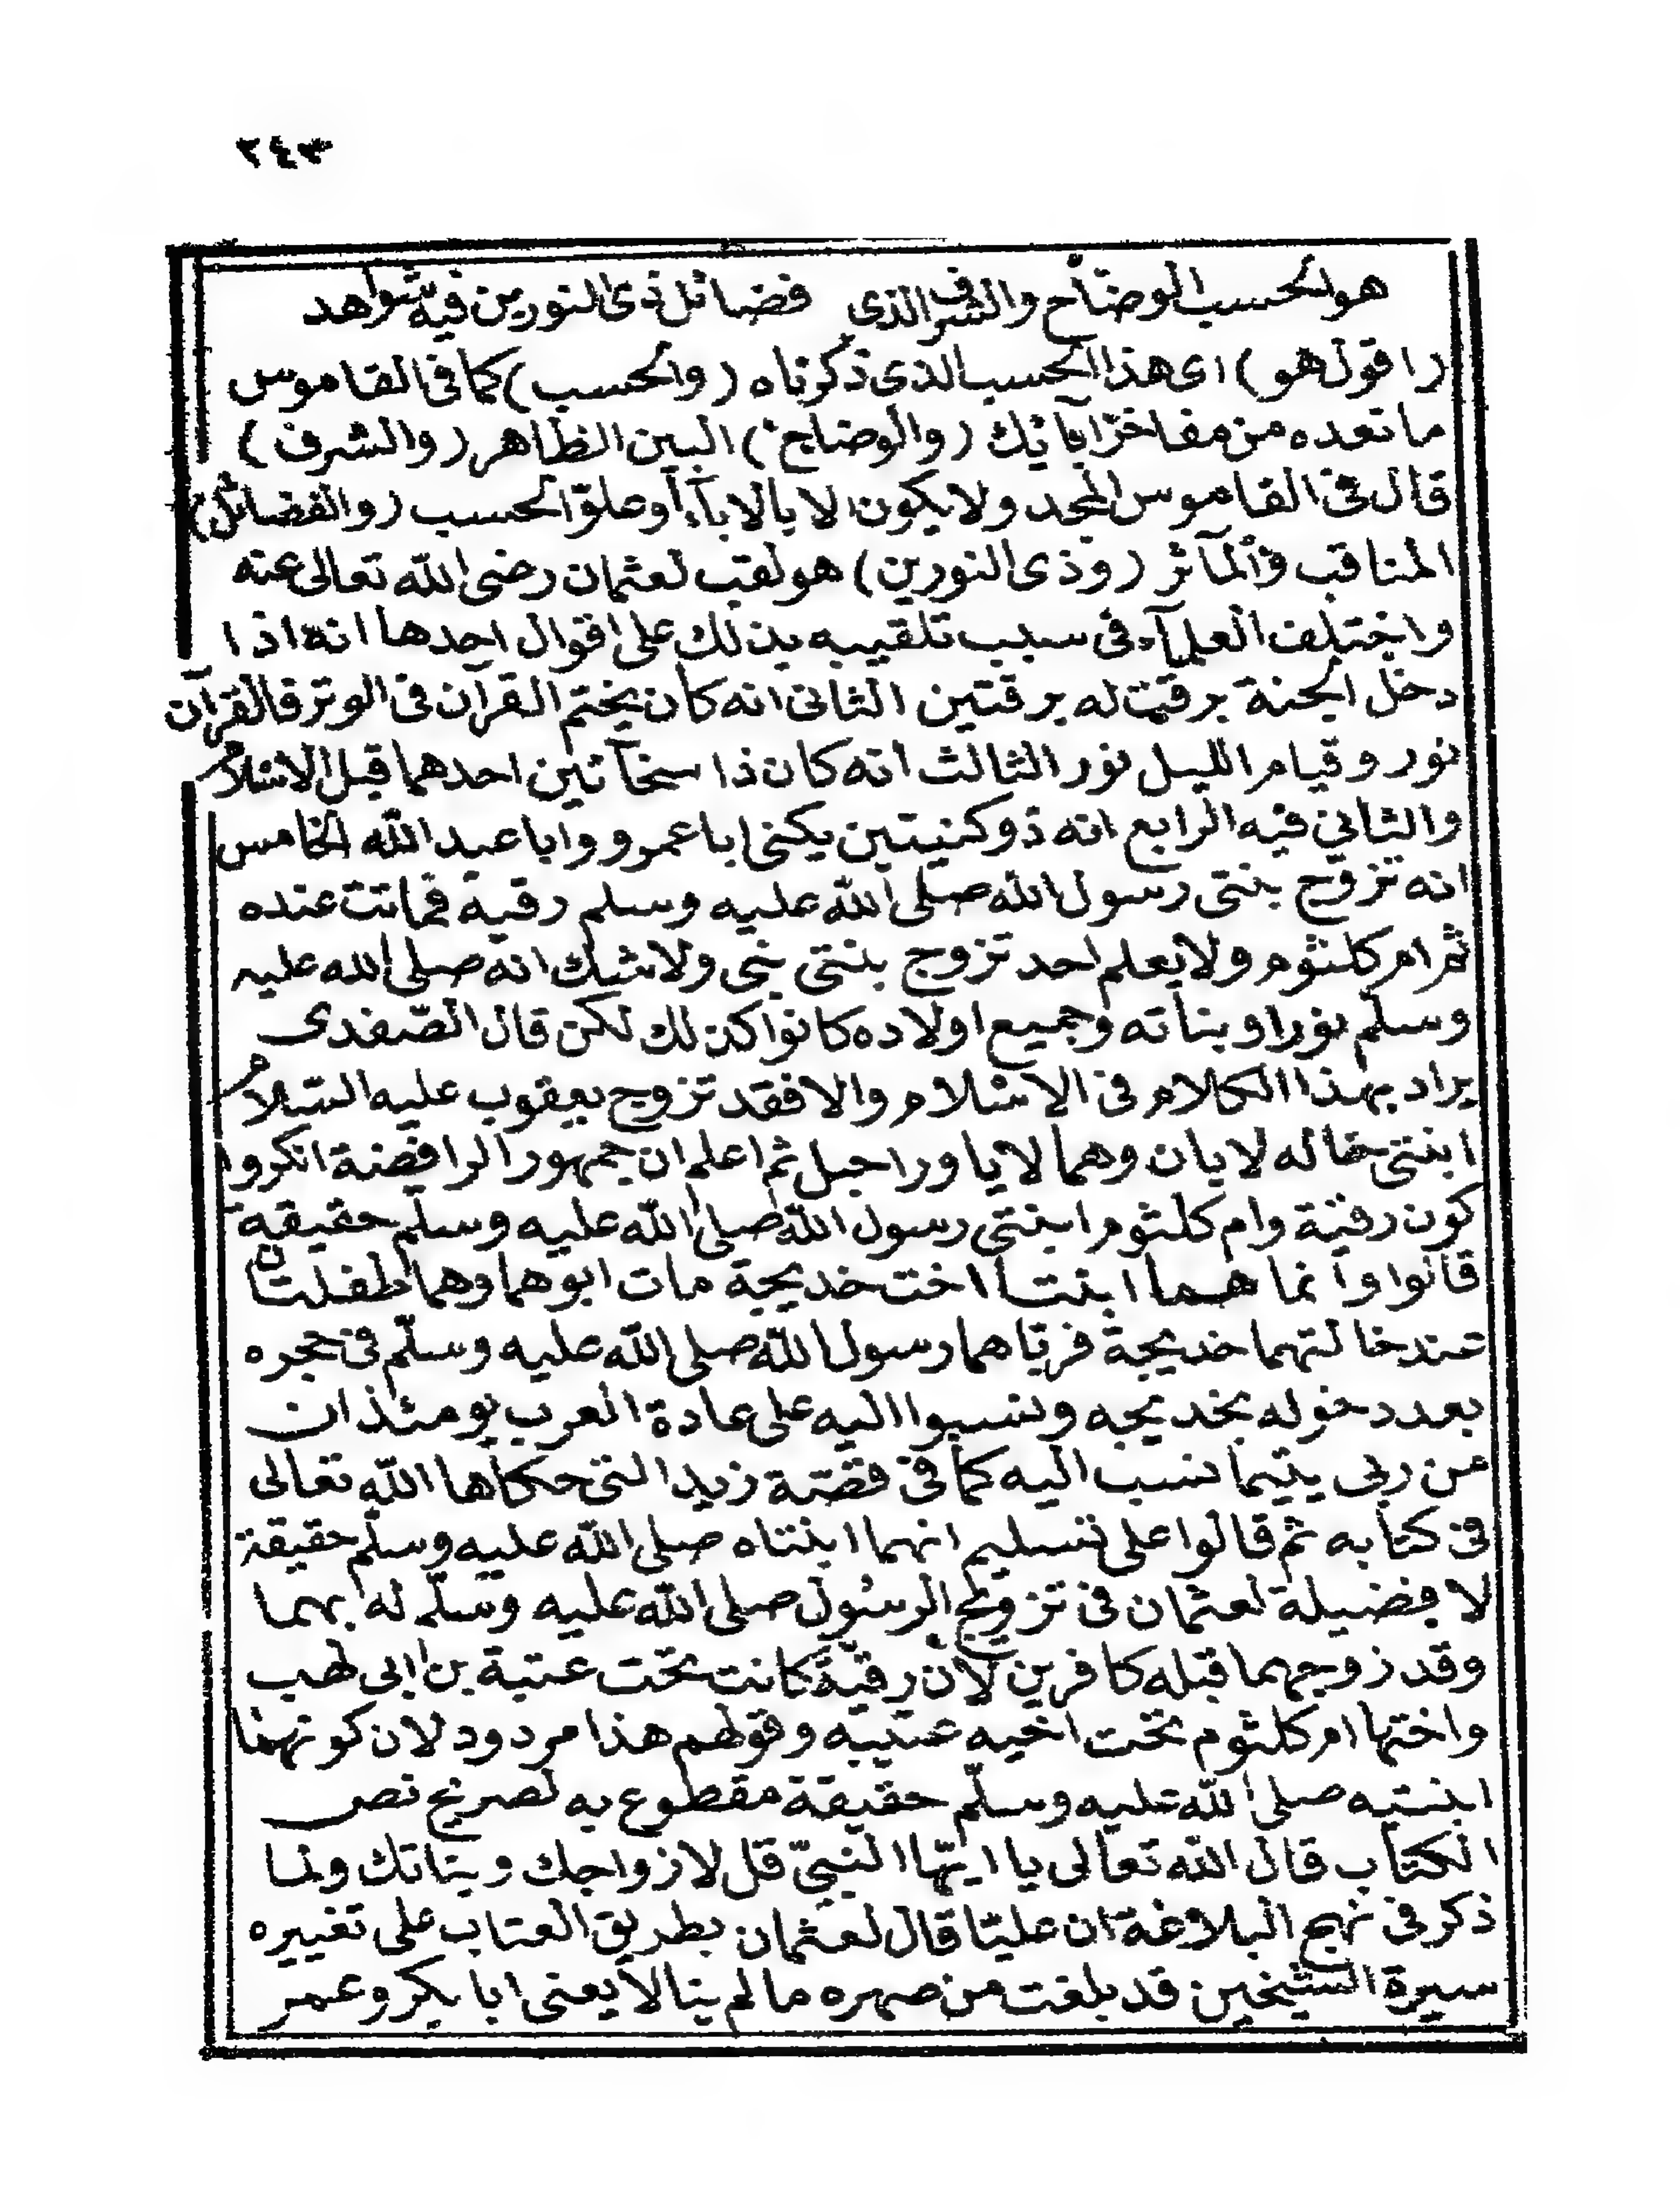 ٢٤٣
هو الحسب الوضاح والشرف الذى فضائل ذى النورين فيه شواهد
(اقول هو) اى هذا الحسب الذى ذكرناه (والحسب) كما فى القاموس
ما تعده من مفاخر آبائك (والوضاح) البين الظاهر (والشرف)
قال فى القاموس المجد ولا يكون الا بالاباء أو علو الحسب (والفضائل)
المناقب والمآثر (وذى النورين) هو لقب لعثمان رضى الله تعالى عنه
واختلف العلمآء فى سبب تلقيبه بذلك على اقوال احدها انه اذا
دخل الجنة برقت له برقتين الثانى انه كان يختم القرآن فى الوتر فالقرآن
نور وقيام الليل نور الثالث انه كان ذا سخائين احدهما قبل الاسلام
والثاني فيه الرابع انه ذو كنيتين يكنى ابا عمرو وابا عبد الله الخامس
انه تزوج بنتى رسول الله صلى الله عليه وسلم رقية فماتت عنده
ثم ام كلثوم ولا يعلم احد تزوج بنتى نبى ولا شك انه صلى الله عليه
وسلم نورا وبناته وجميع اولاده كانوا كذلك لكن قال الصفدى
يراد بهذا الكلام فى الاسلام والا فقد تزوج يعقوب عليه السلام
ابنتى خاله لابان وهما لايا وراجيل ثم اعلم ان جمهور الرافضة انكروا
كون رقية وام كلثوم ابنتى رسول الله صلى الله عليه وسلم حقيقة
قالوا وانما هما ابنتا اخت خديجة مات ابوهما وهما طفلتان
عند خالتهما خديجة فرباهما رسول الله صلى الله عليه وسلم فى حجره
بعد دخوله بخديجه ونسبوا اليه على عادة العرب يومئذ ان
من ربى يتيما نسب اليه كما فى قصة زيد التى حكاها الله تعالى
فى كتابه ثم قالوا على تسليم انهما ابنتاه صلى الله عليه وسلم حقيقة
لا فضيلة لعثمان فى تزويج الرسول صلى الله عليه وسلم له بهما
وقد زوجهما قبله كافرين لان رقية كانت تحت عتبة بن ابى لهب
واختها ام كلثوم تحت اخيه عتيبه وقولهم هذا مردود لان كونهما
ابنتيه صلى الله عليه وسلم حقيقة مقطوع به لصريح نص
الكتاب قال الله تعالى يا ايها النبى قل لازواجك وبناتك ولما
ذكر فى نهج البلاغة ان عليا قال لعثمان بطريق العتاب على تغييره
سيرة الشيخين قد بلغت من صهره ما لم ينالا يعنى ابا بكر وعمر